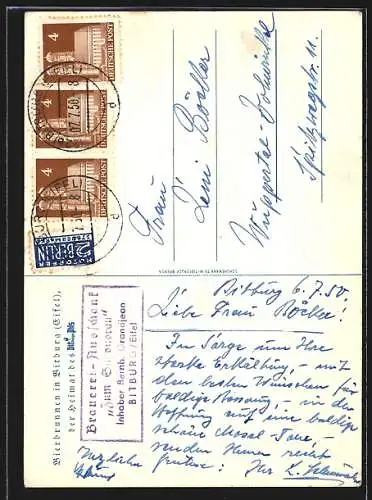 4
DEUTSCHE POST
4
DEUTSCHE POST
4
DEUTSCHE POST
BITBURG (EIFEL)
7.7.50
NOTOPFER
2 BERLIN
STEUERMARKE
Frau
Leni Böcker
Wuppertal-Vohwinkel
Spitzwegstr. 11
Bierbrunnen in Bitburg (Eifel),
der Heimat des
Brauerei-Ausschank
"Zum Simonbräu"
Inhaber Bernh. Grandjean
BITBURG/Eifel
Bitburg 6.7.50.
Liebe Frau Böcker!
In Sorge um Ihre
starke Erkältung, – mit
den besten Wünschen für
baldige Besserung, – in der
Hoffnung auf eine baldige
schöne Mosel Tour, –
senden Ihnen recht
Herzliche
Grüsse
Ihr